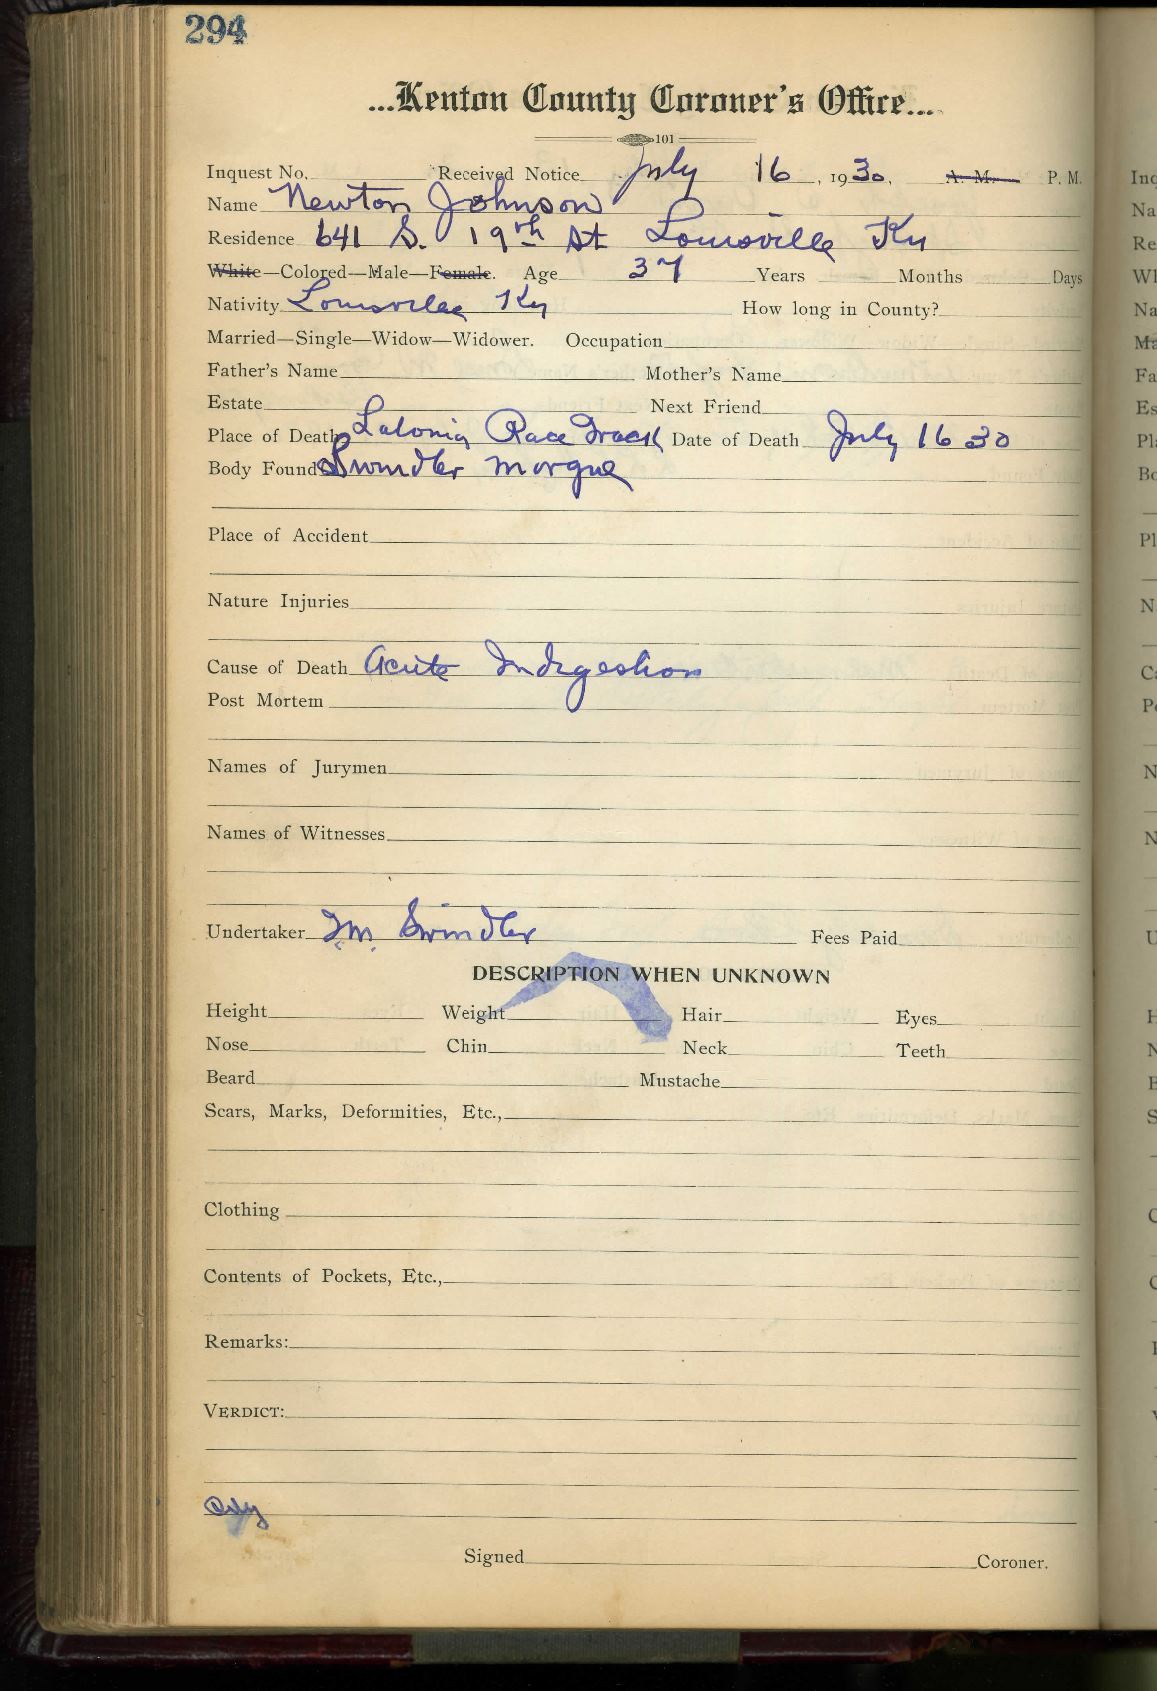 294
...Kenton County Coroner's Office...
101
Inquest No. Received Notice July 16, 1930, A. M. P. M.
Name Newton Johnson
Residence 641 S. 19th St Louisville Ky
White—Colored—Male—Female. Age 37 Years Months Days
Nativity Louisville Ky How long in County?
Married—Single—Widow—Widower. Occupation
Father's Name Mother's Name
Estate Next Friend
Place of Death Latonia Race Track Date of Death July 16 30
Body Found Swindler Morgue
Place of Accident
Nature Injuries
Cause of Death Acute Indigestion
Post Mortem
Names of Jurymen
Names of Witnesses
Undertaker Swindler Fees Paid
DESCRIPTION WHEN UNKNOWN
Height Weight Hair Eyes
Nose Chin Neck Teeth
Beard Mustache
Scars, Marks, Deformities, Etc.,
Clothing
Contents of Pockets, Etc.,
Remarks:
VERDICT:
Signed Coroner.